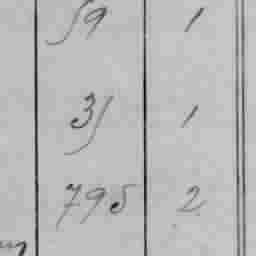 59 1
31 1
795 2